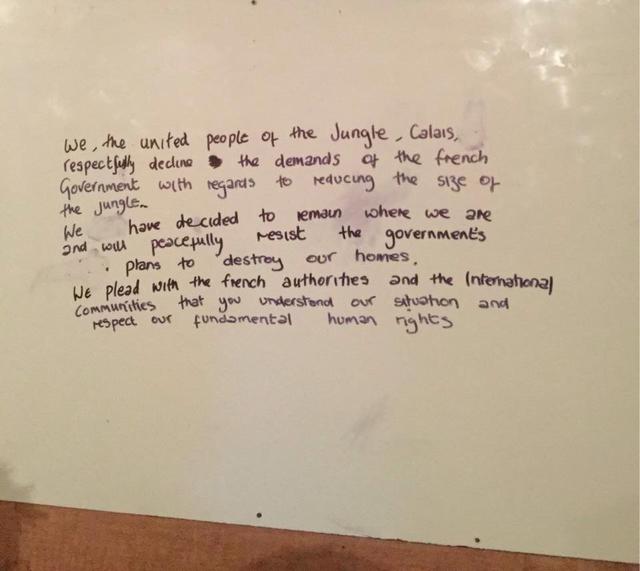 We, the united people of the Jungle, Calais,
respectfully decline the demands of the french
Government with regards to reducing the size of
the jungle.
We have decided to remain where we are
and will peacefully resist the government's
plans to destroy our homes.
We plead with the french authorities and the International
Communities that you understand our situation and
respect our fundamental human rights